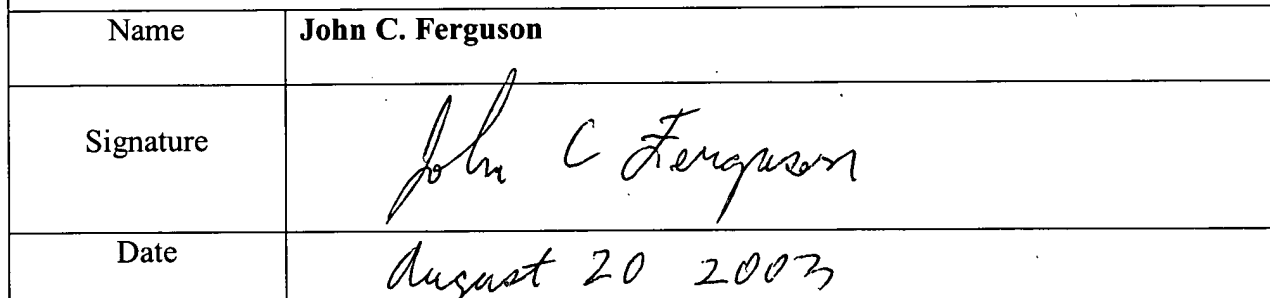 Name John C. Ferguson
Signature John C Ferguson
Date August 20 2003